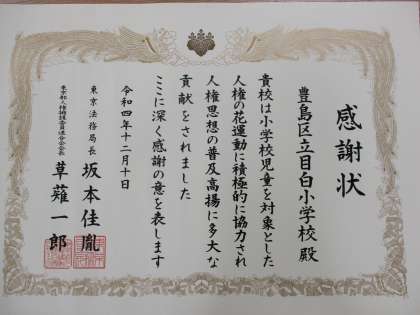 感謝状
豊島区立目白小学校 殿
貴校は小学校児童を対象とした
人権の花運動に積極的に協力され
人権思想の普及高揚に多大な
貢献をされました
ここに深く感謝の意を表します
令和四年十二月十日
東京法務局長 坂本佳胤
東京都人権擁護委員連合会会長 草薙一郎